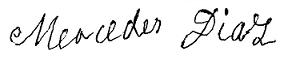 Mercedes Diaz